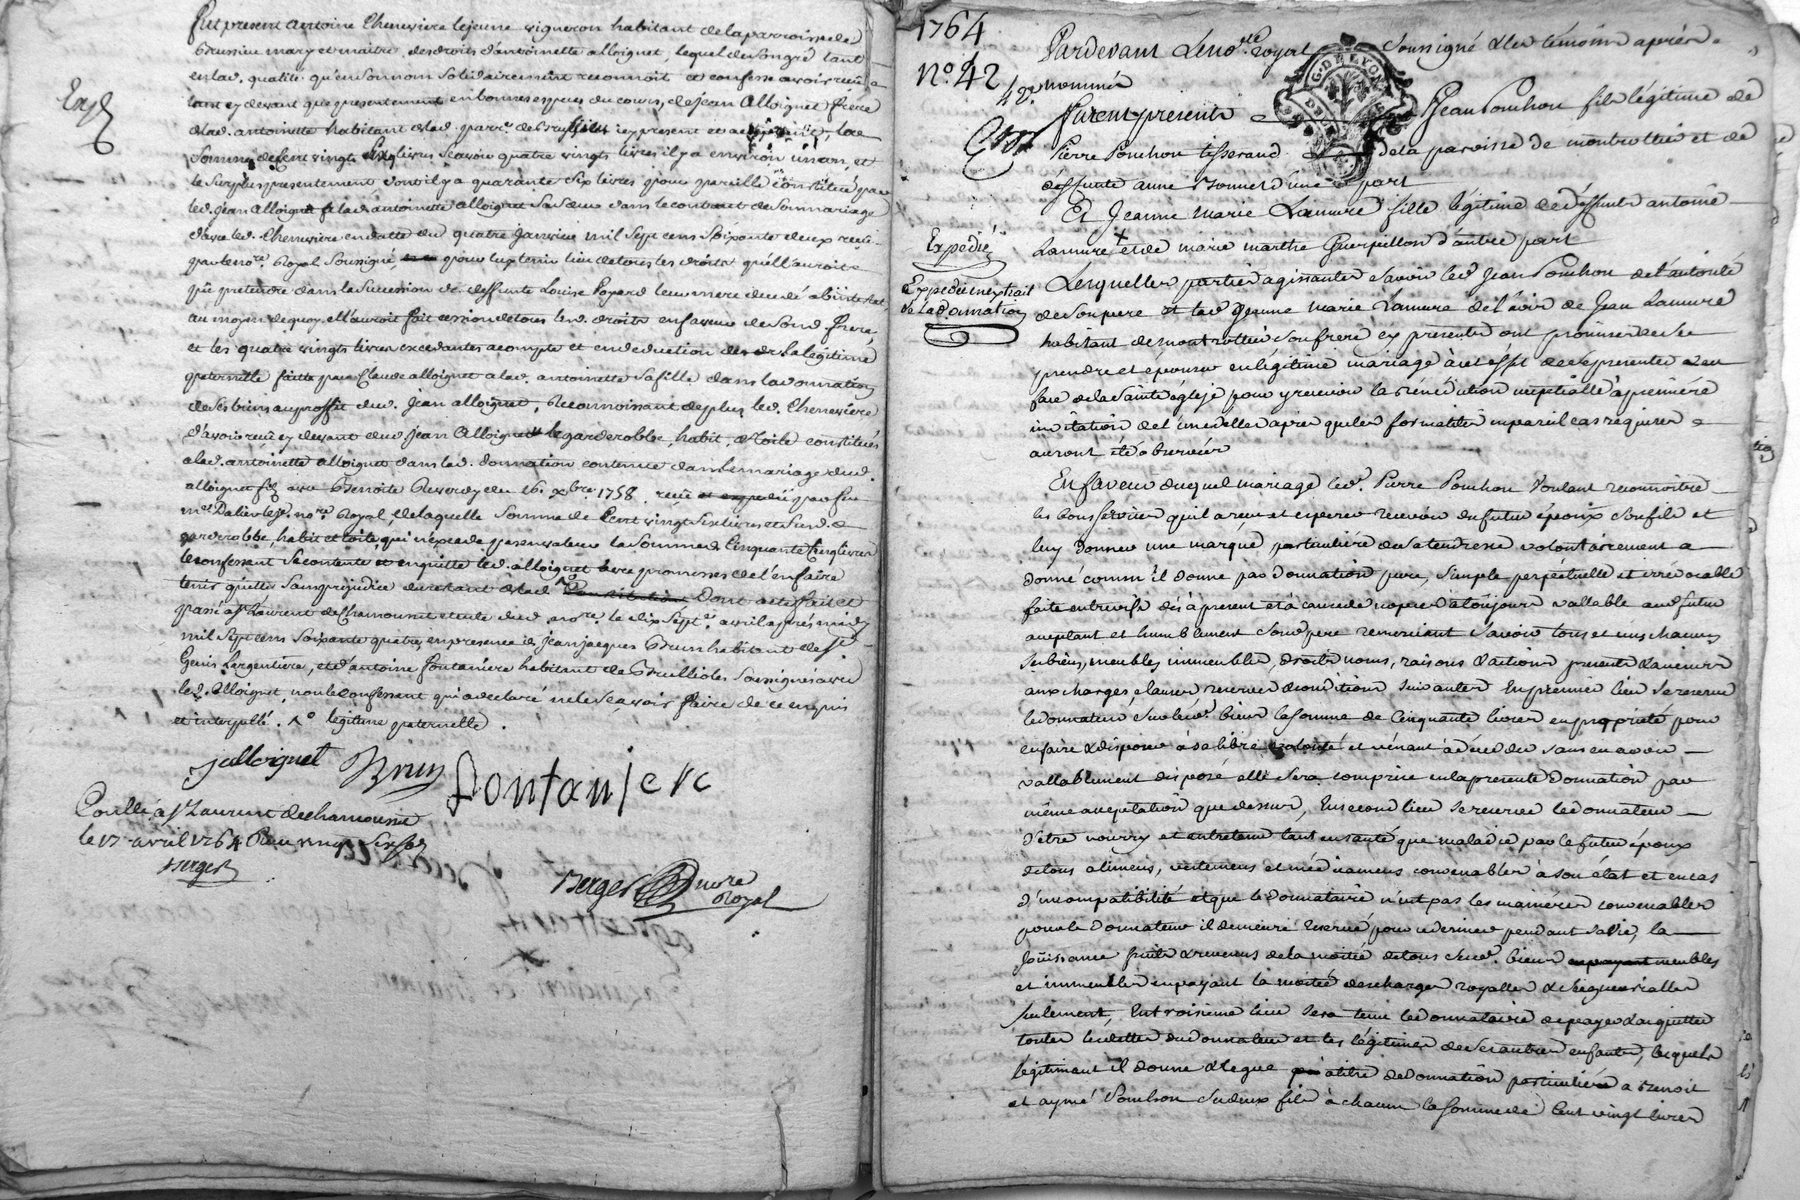 Fut present antoine Chenevière lejeune vigneron habitant de la parroisse de
Brussieu mary et maitre des droits d'antoinette alloignet, lequel de son gré tant
en lad. qualité qu'en son nom solidairement reconnoit et confesse avoir reçu
tant cy devant que presentement en bonnes especes du cours, de jean Alloignet frere
de lad. antoinette habitant de lad. parr.e de Brussieu icy present et acceptant, la
Exp.
somme de Cent vingt six livres scavoir quatre vingts livres il y a environ un an, et
le surplus presentement dont il y a quarante six livres pour pareille constituée par
led. Jean alloignet a lad. antoinette alloignet sa sœur dans le contract de son mariage
d'avec led. Chenevière en datte du quatre janvier mil sept cens soixante deux reçu
par le no.re Royal soussigné, pour luy tenir lieu de tous les droits qu'elle auroit
pû pretendre dans la succession de deffunte Louise Poyard leur mere decedé abintestat
au moyen de quoy elle auroit fait cession de tous led. droits en faveur de sond. frere,
et les quatre vingts livres excedantes acompte et en deduction de la légitime
paternelle faitte par Claude alloignet a lad. antoinette sa fille dans la donnation
de ses biens au proffit dud. Jean alloignet, Reconnoissant de plus led. Chenevière
d'avoir reçu cy devant dud. Jean Alloignet le garderobbe, habit, et toile constitués
a lad. antoinette alloignet dans lad. donnation contenue dans le mariage dud.
alloignet fils avec Benoite Reverdy du 16. xbre 1758. reçu et expedié par feu
m.e Dalin leje. no.re Royal, de laquelle somme de Cent vingt six livres et dud.
garderobbe, habit et toile qui n'excede pas en valeur la somme de Cinquante Cinq livres
le confessant se contente et en quitte led. alloignet avec promesses de l'en faire
tenir quitte sans préjudice du restant de lad. n.o Constitution Dont acte fait et
passé a S.t Laurent de Chamousset etude dud. no.re le dix sept.e avril après midy
mil sept cens soixante quatre, en presence de Jean jacques Brun habitant de S.t
Genis Largentière, et d'antoine fontaniere habitant de Brulliolles soussignés avec
led. Alloignet, non le confessant qui a declaré ne le scavoir faire de ce enquis
et interpellé. n.o légitime paternelle.
jalloignet Brun fontaniere
Conllé a S.t Laurent de chamousset
le 17 avril 1764 Reçu vingt six sols
Berger
Berger no.re Royal
1764
N.o 42
Pardevant Le no.re royal soussigné & les témoins après
nommés
G. DE LYON
furent presents Jean Ponchon fils légitime de
Pierre Ponchon tisserand de la paroisse de montrottier et de
deffunte anne Bonnet d'une part
Et Jeanne Marie Lamure fille légitime de deffunt antoine
Expedié
Lamure et de marie marthe Guerpillon d'autre part
Lesquelles parties agissantes scavoir led. Jean Ponchon de l'autorité
Expedié un extrait
de la donnation
de son pere et lad. Jeanne Marie Lamure de l'avis de Jean Lamure
habitant de montrottier son frere cy présent ont promis de se
prendre et épouser en légitime mariage à cet effet de se présenter en
face de la Sainte église pour y recevoir la bénédiction nuptialle à première
invitation de l'un d'elles après que les formalités en pareil cas requises
auront été observées
En faveur duquel mariage led. Pierre Ponchon voulant reconnoitre
les bons services qu'il a reçu et espere recevoir du futur époux son fils et
luy donner une marque particulière de sa tendresse volontairement a
donné comm'il donne par donnation pure, simple perpétuelle et irrévocable
faite entrevifs dès à présent et à cause de noces à toujours vallable aud. futur
acceptant et humblement sond. pere remerciant scavoir tous et uns chacuns
ses biens, meubles immeubles, droits noms, raisons & actions presents & avenir
aux charges clauses reserves & conditions suivantes En premier lieu se reserve
le donnateur sur sesd. biens la somme de Cinquante livres en propriété pour
en faire & disposer à sa libre volonté et venant à décéder sans en avoir
vallablement disposé elle sera comprise en la presente donnation par
même acceptation que dessus, En second lieu se reserve le donnateur
d'être nourry et entretenu tant en santé que maladie par le futur époux
de tous aliments, vestemens et médicamens convenables à son état et en cas
d'incompatibilité et que le donnataire n'eut pas les manières convenables
pour le donnateur il demeure reservé pour ce dernier pendant sa vie, la
Jouissance fruits & revenus de la moitié de tous sesd. biens en payant meubles
et immeubles en payant la moitié des charges royalles & seigneurialles
seulement, En troisième lieu sera tenu le donnataire de payer & acquitter
toutes les dettes du donnateur et les légitimes de ses autres enfants, lesquels
légitimant il donne & legue à titre de donnation particulière a Benoit
et aymé Ponchon ses deux fils à chacun la somme de Cent vingt livres